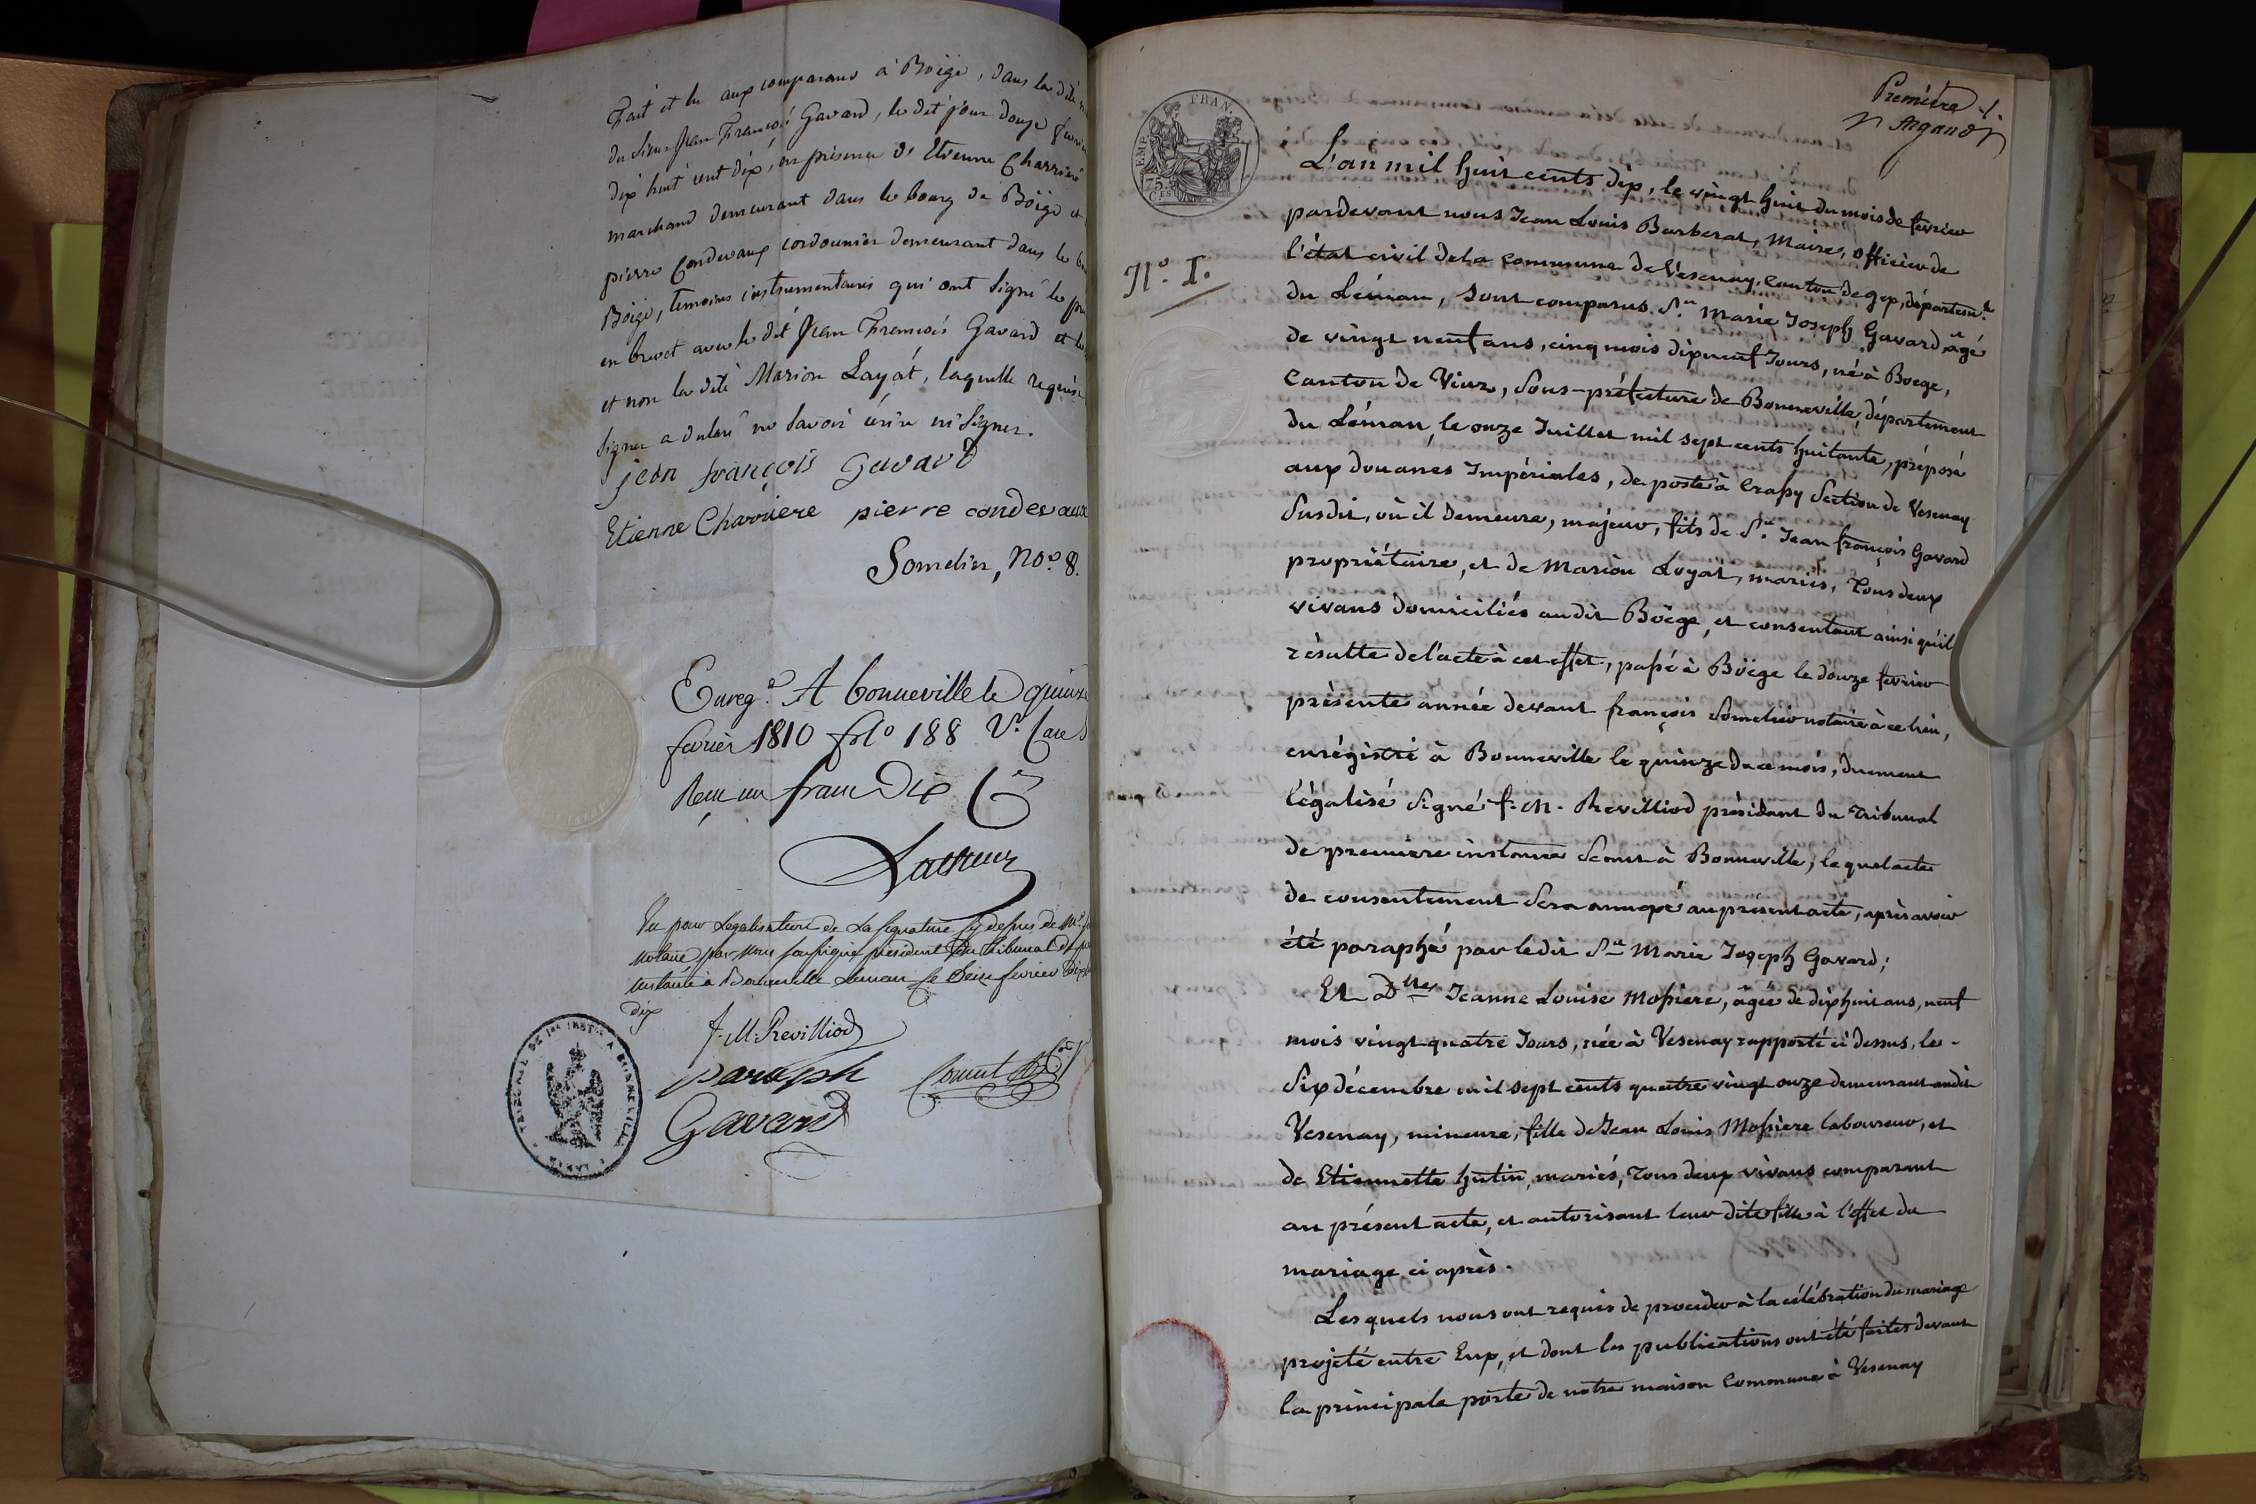 Fait et lu aux comparans à Böège, dans la dite
du Sieur Jean François Gavard, le dit jour douze fevrier
dix huit cent dix, en présence de Etienne Charrière
marchand demeurant dans le bourg de Böège et
pierre Condevaux cordonnier demeurant dans le
Böège, temoins instrumentaires qui ont signé le
en brevet avec le dit Jean François Gavard et
et non la dite Marion Layát, laquelle requise
signer a declaré ne savoir écrire ni signer.
jean françois gavard
Etienne Charriere pierre condevaux
Somelier, No.e 8.
Enreg.é A bonneville le quinze
fevrier 1810 fol.o 188 V.o Case
Reçu un franc dix C.
Vu pour Legalisation de La signature cy dessus de M.e
notaire par nous soussigné président du tribunal de
instance à Bonneville Leman le seize fevrier
dix
F. M. Revilliod
paraph
Gavard
TRIBUNAL DE 1ERE INSTCE A BONNEVILLE
Première 1.
Argand
EMP. FRAN.
75
CES
N.o I.
L'an mil huit cents dix, le vingt huit du mois de fevrier
pardevant nous Jean Louis Barberat, Maire, officier de
l'état civil de la commune de Vesenay, canton de gex, départem.t
du Léman, sont comparus S.r Marie Joseph Gavard, âgé
de vingt neuf ans, cinq mois dixneuf Jours, né à Boege,
Canton de Viuz, Sous-préfecture de Bonneville, département
du Léman, le onze Juillet mil sept cents huitante, préposé
aux douanes Impériales, de poste à Crassy Section de Vesenay
susdit, où il demeure, majeur, fils de S.r Jean françois Gavard
propriétaire, et de Marion Loyat, mariés, Tous deux
vivans domiciliés audit Böège, et consentant ainsi qu'il
résulte de l'acte à cet effet, passé à Böège le douze fevrier
présente année devant françois Somelier notaire à ce lieu,
enrégistré à Bonneville le quinze de ce mois, duement
légalisé signé f. M. Revilliod président du Tribunal
de premiere instance séant à Bonneville, lequel acte
de consentement sera annexé au présent acte, après avoir
été paraphé par le dit S.r Marie Joseph Gavard;
Et D.lle Jeanne Louise Mossiere, âgée de dixhuit ans, neuf
mois vingt quatre Jours, née à Vesenay rapporté ci dessus, le
Six décembre mil sept cents quatre vingt onze demeurant audit
Vesenay, mineure, fille de Jean Louis Mossiere laboureur, et
de Etiennette hutin, mariés, Tous deux vivans comparant
au présent acte, et autorisant leur dite fille à l'effet du
mariage ci après.
Lesquels nous ont requis de proceder à la célébration du mariage
projeté entre Eux, et dont les publications ont été faites devant
la principale porte de notre maison Commune à Vesenay